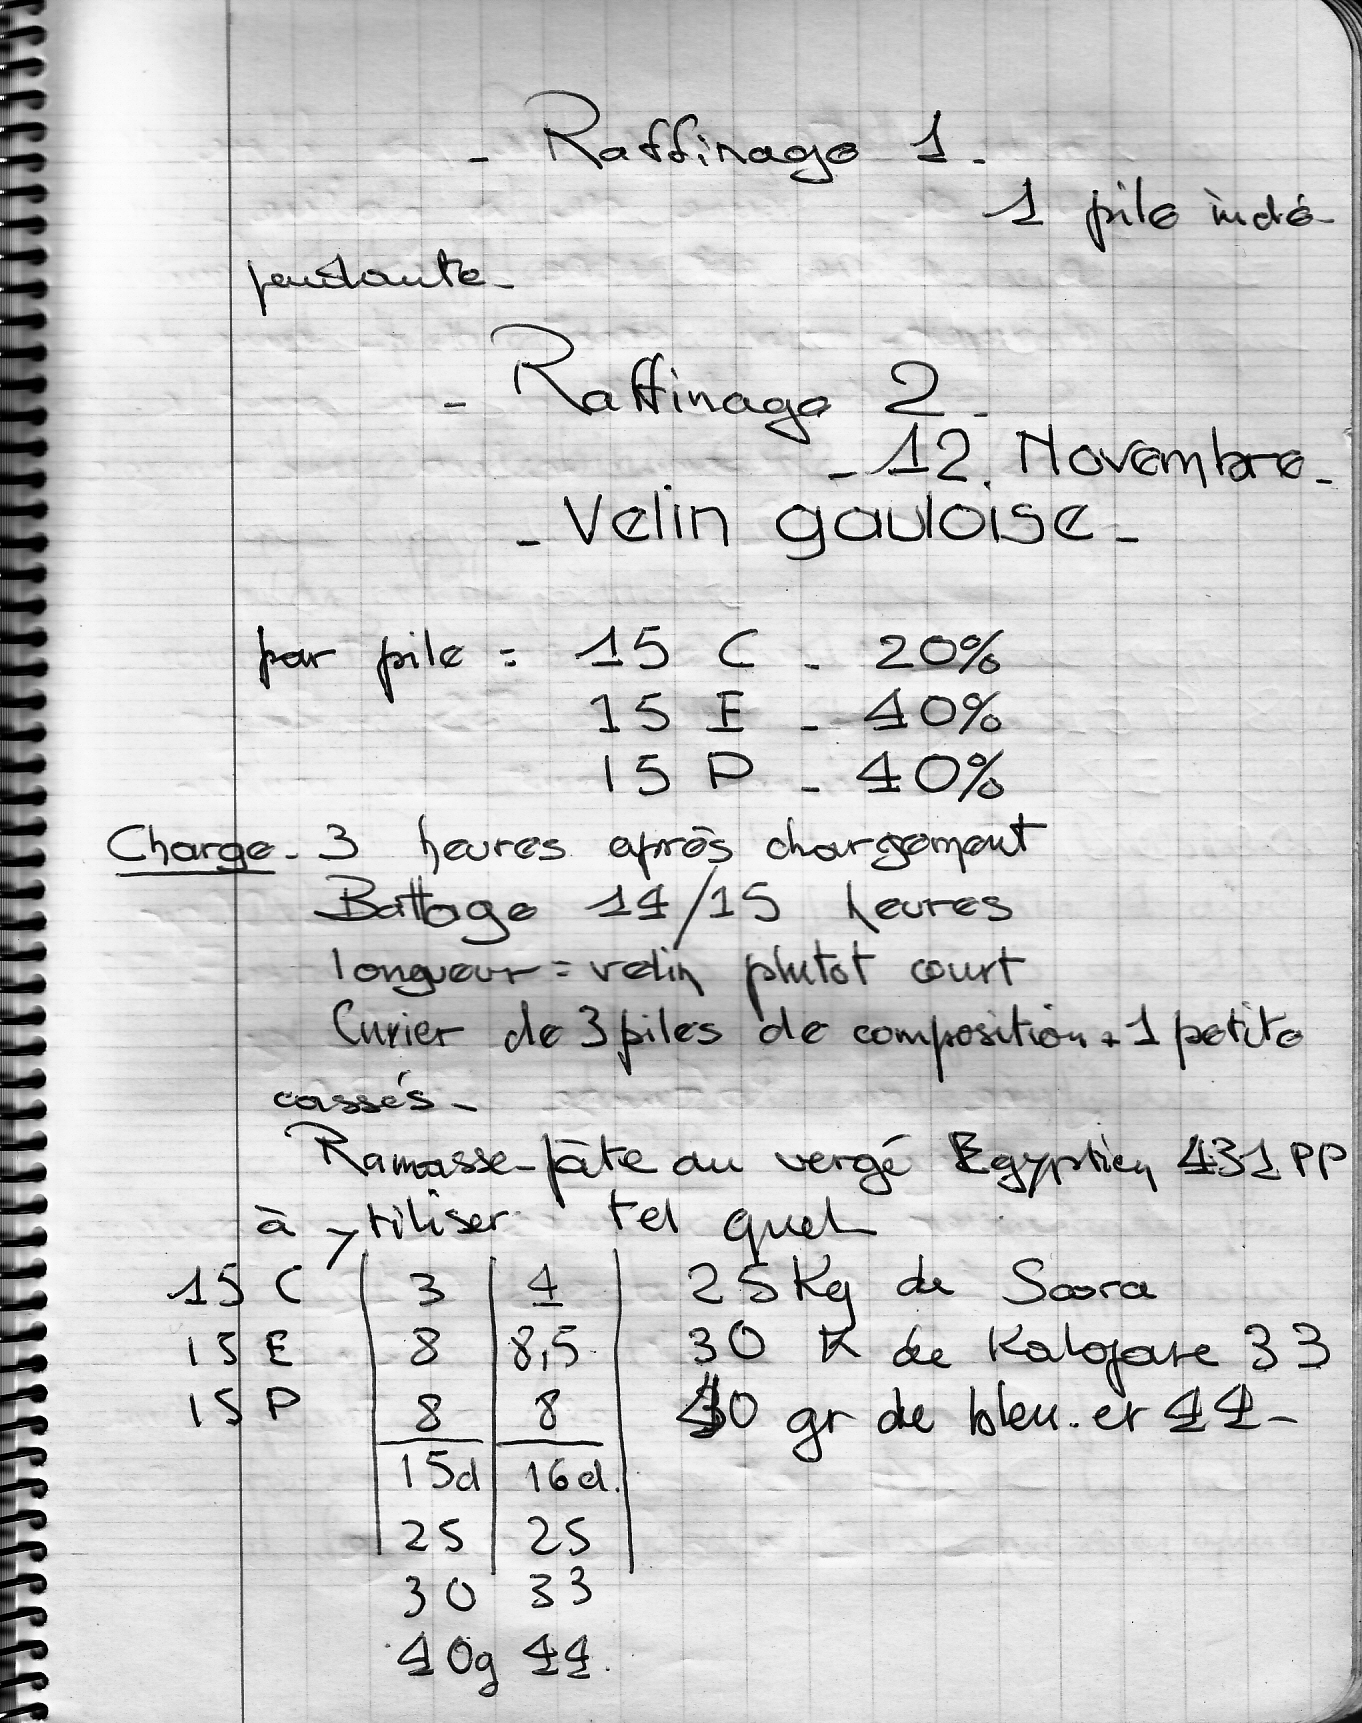 - Raffinage 1 -
1 pile indé-
pendante -
- Raffinage 2 -
- 12. Novembre -
- Velin gauloise -
par pile = 15 C - 20%
15 E - 40%
15 P - 40%
Charge - 3 heures après chargement
Battage 14/15 heures
longueur = velin plutot court
Cuvier de 3 piles de composition + 1 petite
cassés -
Ramasse-pâte au vergé Egyptien 431 PP
à utiliser tel quel
15 C | 3 | 4 | 25 Kg de Socra
15 E | 8 | 8,5 | 30 K de Kalofare 33
15 P | 8 | 8 | 40 gr de bleu et 44 -
15d | 16d.
25 | 25
30 33
40g 44.